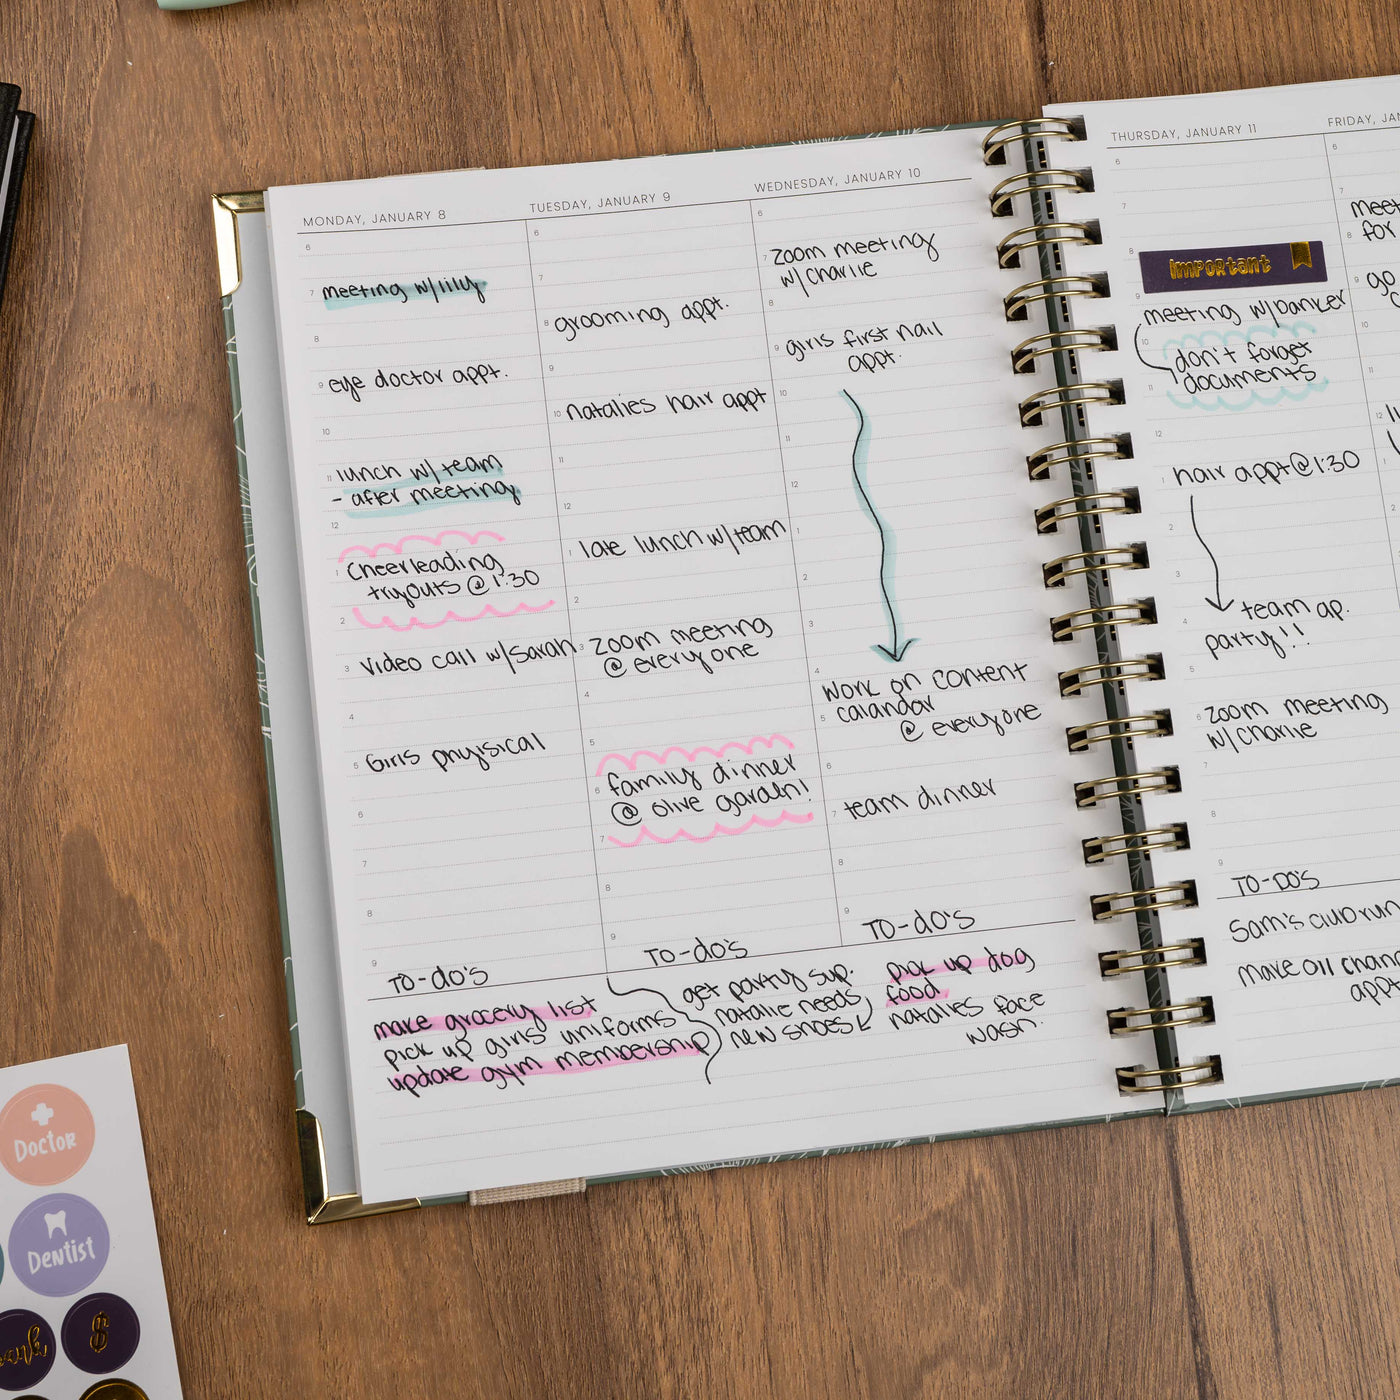 MONDAY, JANUARY 8
6
7 meeting w/lily
8
9 eye doctor appt.
10
11 lunch w/ team
- after meeting
12
1 Cheerleading
tryouts @ 1:30
2
3 video call w/Sarah
4
5 Girls phyisical
6
7
8
9
TO-do's
make grocery list
pick up girls uniforms
update gym membership
TUESDAY, JANUARY 9
6
7
8 grooming appt.
9
10 natalies hair appt
11
12
1 late lunch w/team
2
3 Zoom meeting
@ everyone
4
5
6 family dinner
@ olive garden!
7
8
9
TO-do's
get party sup.
natalie needs
new shoes
WEDNESDAY, JANUARY 10
6
7 zoom meeting
w/ Charlie
8
9 girls first nail
appt.
10
11
12
1
2
3
4
work on content
5 calandar
@ everyone
6
7 team dinner
8
9
TO-do's
pick up dog
food
natalies face
wash.
THURSDAY, JANUARY 11
6
7
8
Important
9
meeting w/banker
10
don't forget
11 documents
12
1 hair appt@1:30
2
3
team ap.
4 party!!
5
6 zoom meeting
w/Charlie
7
8
9
TO-DO'S
Sam's club run
make oil
appt
FRIDAY,
6
7
8 for
9 go
10
11
12
1
2
Doctor
Dentist
$